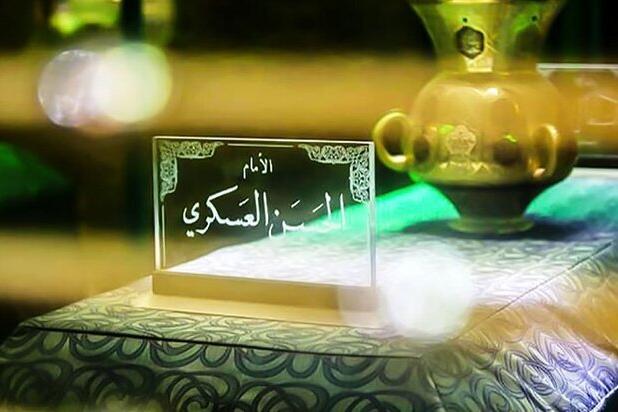 الإمام
الحَسَن العَسكري